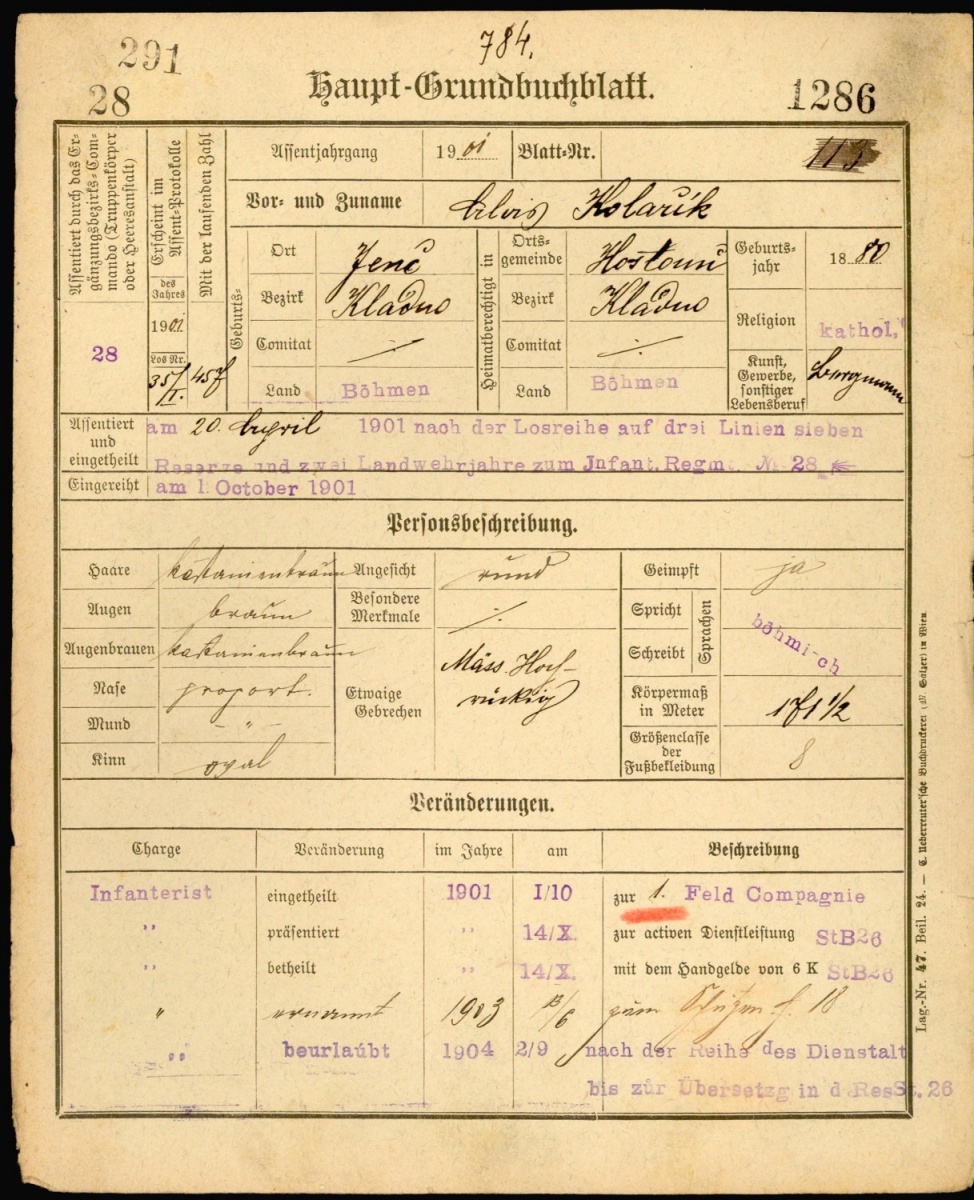 291
784.
28
Haupt-Grundbuchblatt.
1286
Assentiert durch das Ergänzungsbezirks-Commando (Truppenkörper oder Heeresanstalt)
28
Erscheint im Assent-Protokolle
des Jahres
1901
Los Nr.
35/I.
Mit der laufenden Zahl
457
Assentjahrgang 1901 Blatt-Nr. 113
Vor- und Zuname Alois Kolařík
Geburts-
Ort Jenč
Bezirk Kladno
Comitat ./.
Land Böhmen
Heimatberechtigt in
Ortsgemeinde Hostouň
Bezirk Kladno
Comitat ./.
Land Böhmen
Geburtsjahr 1880
Religion kathol.
Kunst, Gewerbe, sonstiger Lebensberuf Bergmann
Assentiert und eingetheilt am 20. April 1901 nach der Losreihe auf drei Linien sieben
Reserve und zwei Landwehrjahre zum Jnfant. Regmt. № 28
Eingereiht am 1. October 1901
Personsbeschreibung.
Haare kastanienbraun
Augen braun
Augenbrauen kastanienbraun
Nase proport.
Mund - " -
Kinn oval
Angesicht rund
Besondere Merkmale ./.
Etwaige Gebrechen Mäss. Hoch-
rückig
Geimpft ja
Spricht
Schreibt
Sprachen
böhmi-ch
Körpermaß in Meter 171 1/2
Größenclasse der Fußbekleidung 8
Veränderungen.
Charge Veränderung im Jahre am Beschreibung
Infanterist eingetheilt 1901 I/10 zur 1. Feld Compagnie
" präsentiert " 14/X. zur activen Dienstleistung StB26
" betheilt " 14/X. mit dem Handgelde von 6 K StB26
" ernannt 1903 /6 zum
18
" beurlaubt 1904 2/9 nach der Reihe des Dienstalt
bis zur Übersetzg in d ResSt. 26
Lag.-Nr. 47. Beil. 24. — C. Ueberreuter'sche Buchdruckerei (M. Salzer) in Wien